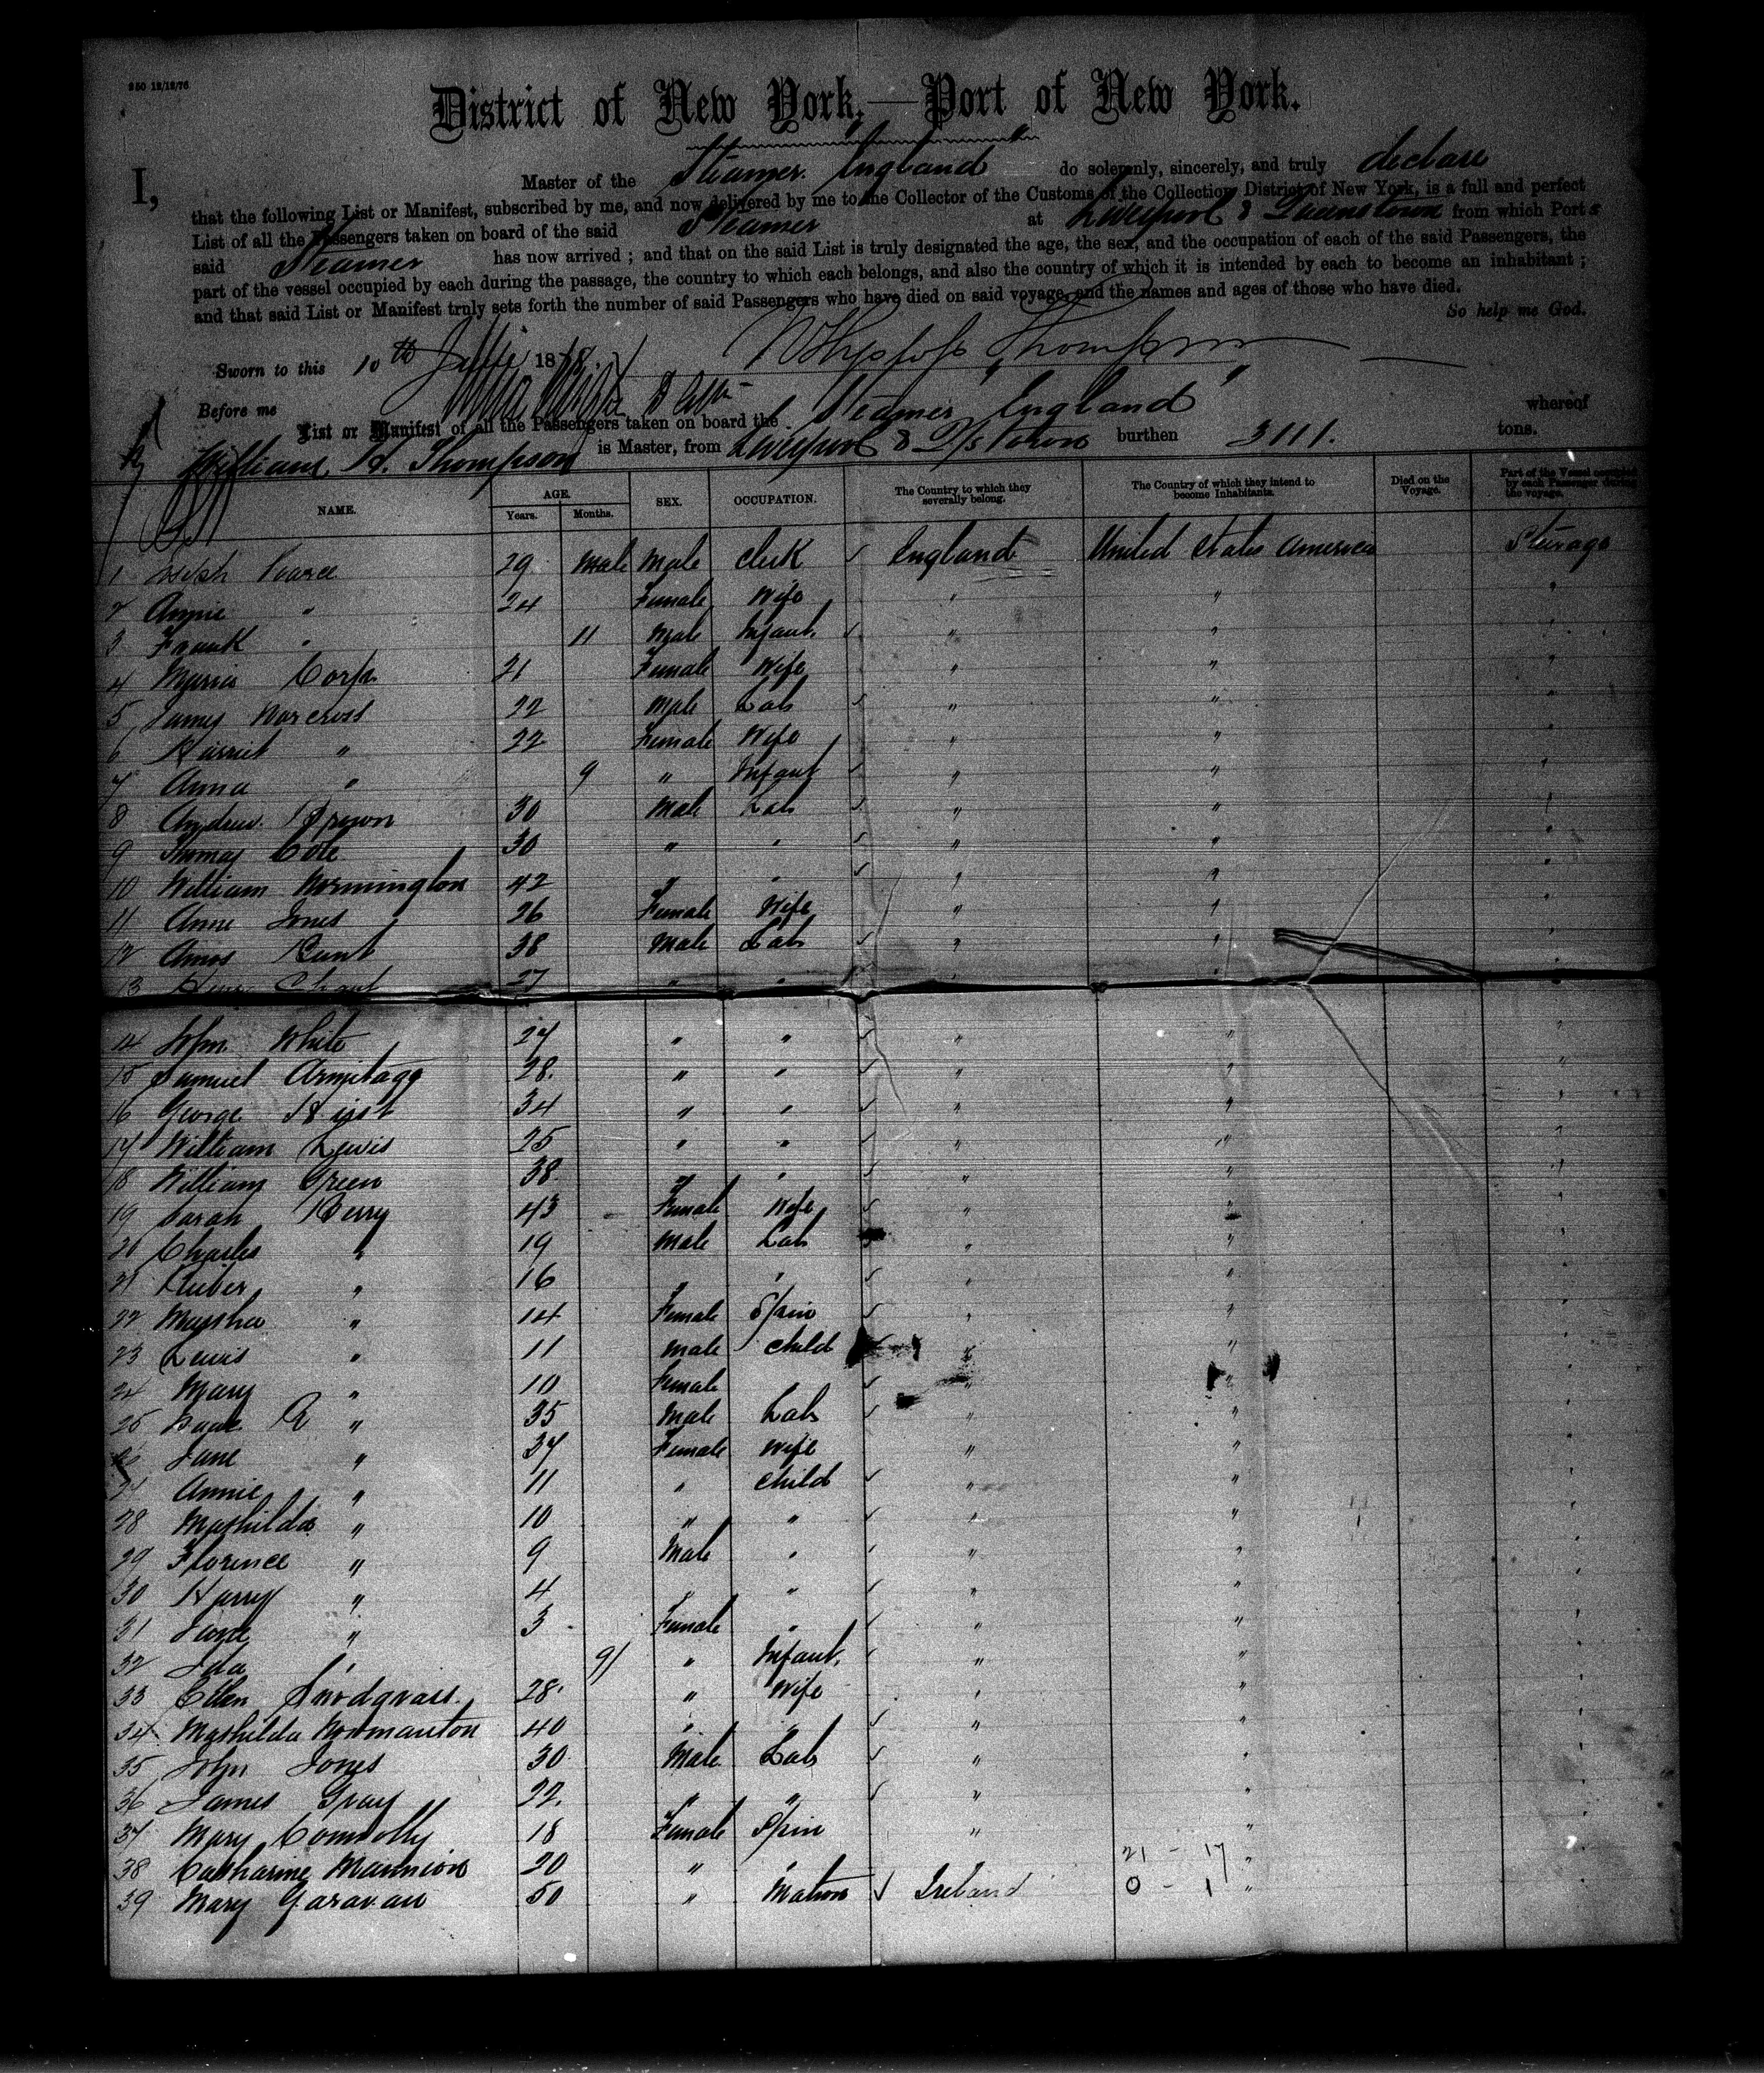 250 12/12/76
District of New York,—Port of New York.
I, Master of the Steamer "England" do solemnly, sincerely, and truly declare
that the following List or Manifest, subscribed by me, and now delivered by me to the Collector of the Customs of the Collection District of New York, is a full and perfect
List of all the Passengers taken on board of the said Steamer at Liverpool & Queenstown from which Ports
said Steamer has now arrived ; and that on the said List is truly designated the age, the sex, and the occupation of each of the said Passengers, the
part of the vessel occupied by each during the passage, the country to which each belongs, and also the country of which it is intended by each to become an inhabitant ;
and that said List or Manifest truly sets forth the number of said Passengers who have died on said voyage, and the names and ages of those who have died.
So help me God.
Sworn to this 10th 18 Thompson
Before me
List or Manifest of all the Passengers taken on board the Steamer "England" whereof
William H. Thompson is Master, from Liverpool & Q/s Town burthen 3111. tons.
NAME. AGE. Years. Months. SEX. OCCUPATION. The Country to which they severally belong. The Country of which they intend to become Inhabitants. Died on the Voyage. Part of the Vessel occupied by each Passenger during the voyage.
1 Pearce 29 male Male Clerk England United States America Steerage
2 Annie " 24 Female Wife " " "
3 Frank " 11 Male Infant " " "
4 Maria Corp 21 Female Wife " " "
5 James Norcross 22 Male Lab " " "
6 Harriet " 22 Female Wife " " "
7 Anna " 9 " Infant " " "
8 Andrew Brown 30 Male Lab " " "
9 Thomas Cole 30 " " " " "
10 William Normington 42 " " " " "
11 Anne Jones 26 Female Wife " " "
12 Amos Bunt 38 Male Lab " " "
13 27 " " " " "
14 John White 27 " " " " "
15 Samuel Armitage 28. " " " " "
16 George Hirst 34 " " " " "
17 William Lewis 25 " " " " "
18 William Green 38. " " " " "
19 Sarah Berry 43 Female Wife " " "
20 Charles " 19 Male Lab " " "
21 " 16 " " " " "
22 Martha " 14 Female Spin " " "
23 Lewis " 11 male child " " "
24 Mary " 10 Female " " "
25 " 35 Male Lab " " "
26 Jane " 37 Female Wife " " "
27 Annie " 11 " child " " "
28 Mathilda " 10 " " " " "
29 Florence " 9 Male " " " "
30 Harry " 4 " " " "
31 Jane " 3 Female " " " "
32 Ida " 9 " Infant " " "
33 Ellen Snodgrass 28. " Wife " " "
34 Mathilda Normanton 40 " " " " "
35 John Jones 30 Male Lab " " "
36 James Gray 22. " " " " "
37 Mary Connolly 18 Female Spin " " "
38 Catharine Mannion 20 " " 21 - 17 " "
39 Mary Garavan 50 " Matron Ireland 0 - 1 " "